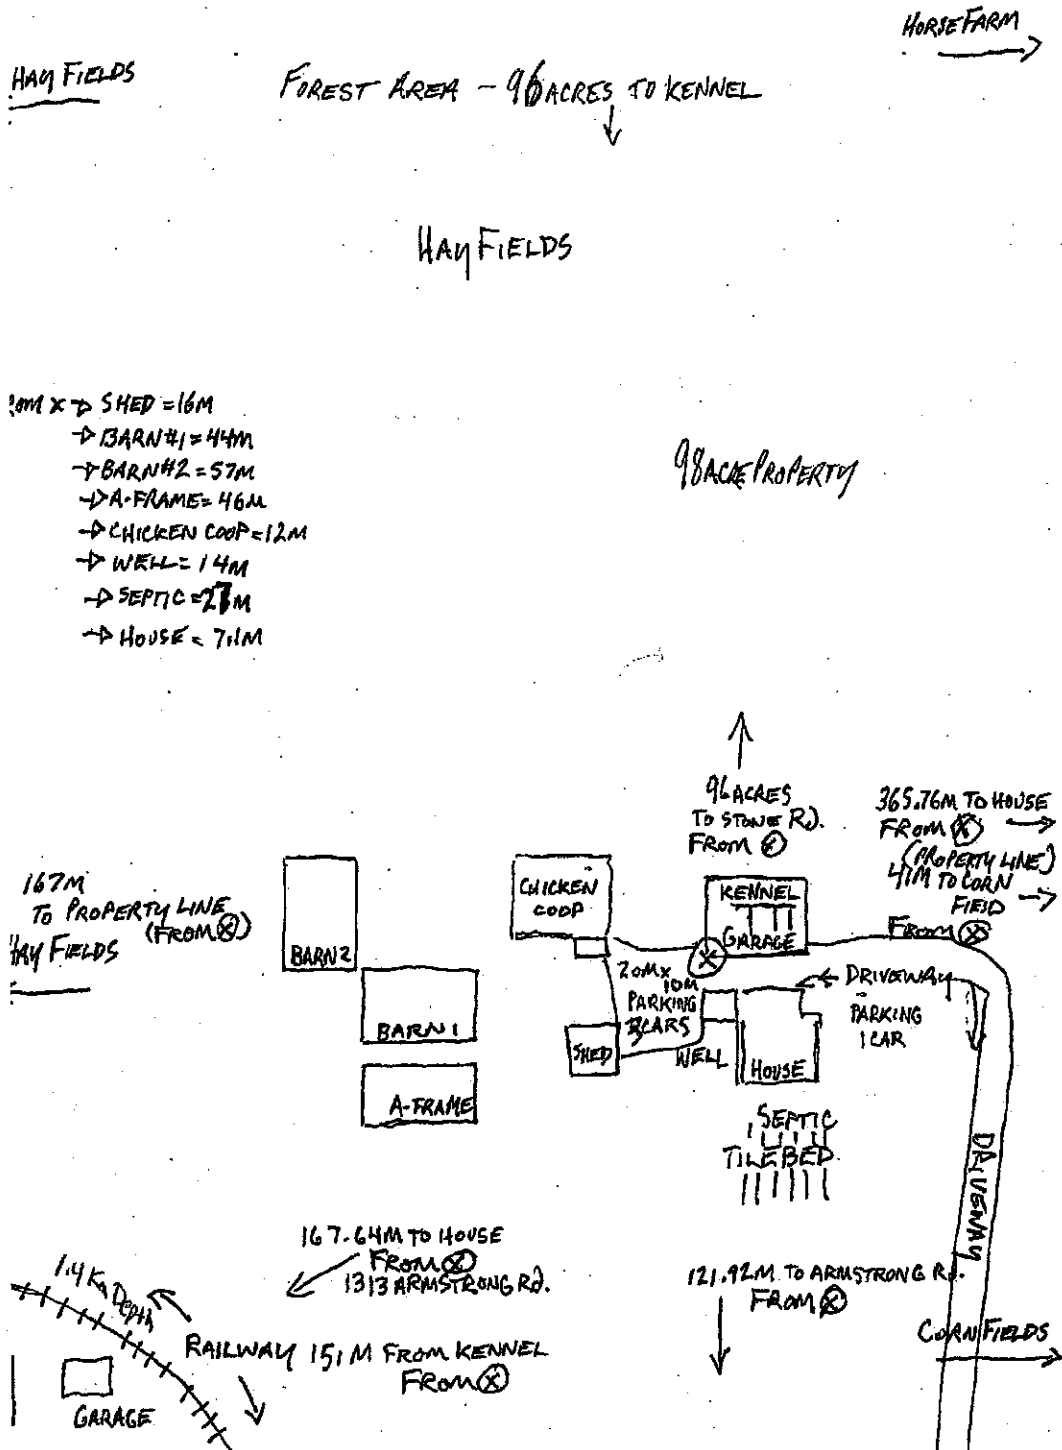 HORSE FARM
HAY FIELDS
FOREST AREA - 96 ACRES TO KENNEL
HAY FIELDS
X → SHED = 16M
→ BARN #1 = 44M
→ BARN #2 = 57M
→ A-FRAME = 46M
→ CHICKEN COOP = 12M
→ WELL = 14M
→ SEPTIC = 27M
→ HOUSE = 7.1M
98 ACRE PROPERTY
96 ACRES
TO STONE RD.
FROM Ⓧ
365.76M TO HOUSE
FROM Ⓧ
(PROPERTY LINE)
41M TO CORN
FIELD
FROM Ⓧ
167M
TO PROPERTY LINE
(FROM Ⓧ)
HAY FIELDS
BARN 2
CHICKEN
COOP
KENNEL
GARAGE
X
BARN 1
20M x
10M
PARKING
CARS
DRIVEWAY
PARKING
1 CAR
SHED
WELL
HOUSE
A-FRAME
SEPTIC
TILE BED
DRIVEWAY
167.64M TO HOUSE
FROM Ⓧ
1313 ARMSTRONG RD.
121.92M TO ARMSTRONG RD.
FROM Ⓧ
1.4 Km Depth
RAILWAY 151M FROM KENNEL
FROM Ⓧ
GARAGE
CORN FIELDS